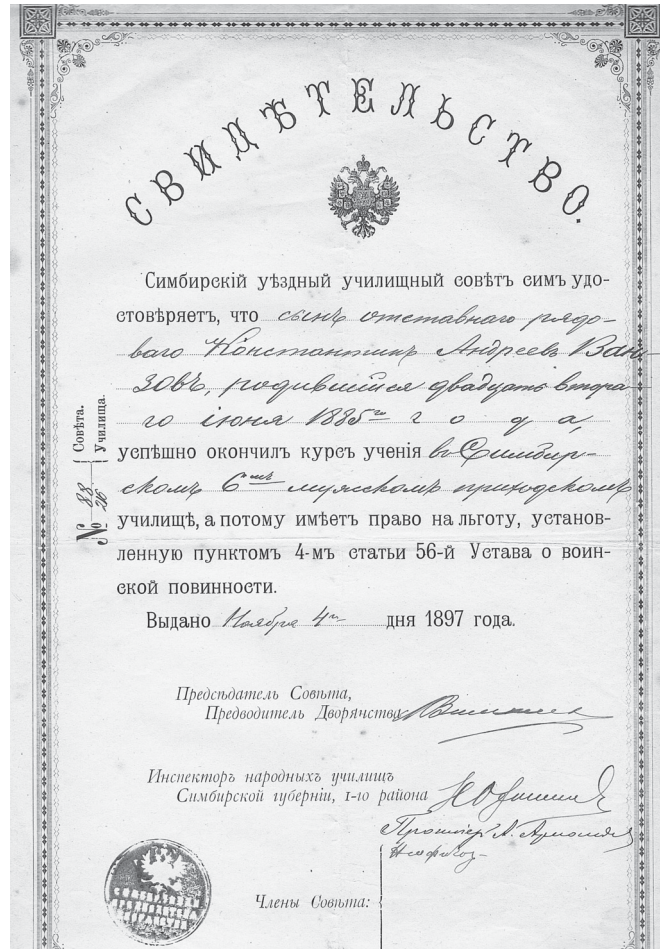 СВИДѢТЕЛЬСТВО.
Симбирскій уѣздный училищный совѣтъ симъ удо-
стовѣряетъ, что сынъ отставнаго рядо-
ваго Константинъ Андреевъ Ван-
зовъ, родившійся двадцать втора-
го іюня 1885го года,
успѣшно окончилъ курсъ ученія въ Симбир-
скомъ 6мъ мужскомъ приходскомъ
училищѣ, а потому имѣетъ право на льготу, установ-
ленную пунктомъ 4-мъ статьи 56-й Устава о воин-
ской повинности.
Выдано Ноября 4го дня 1897 года.
№ 88 Совѣта.
26 Училища.
Предсѣдатель Совѣта,
Предводитель Дворянства
Инспекторъ народныхъ училищъ
Симбирской губерніи, 1-го района
Протоіерей А.
Члены Совѣта: